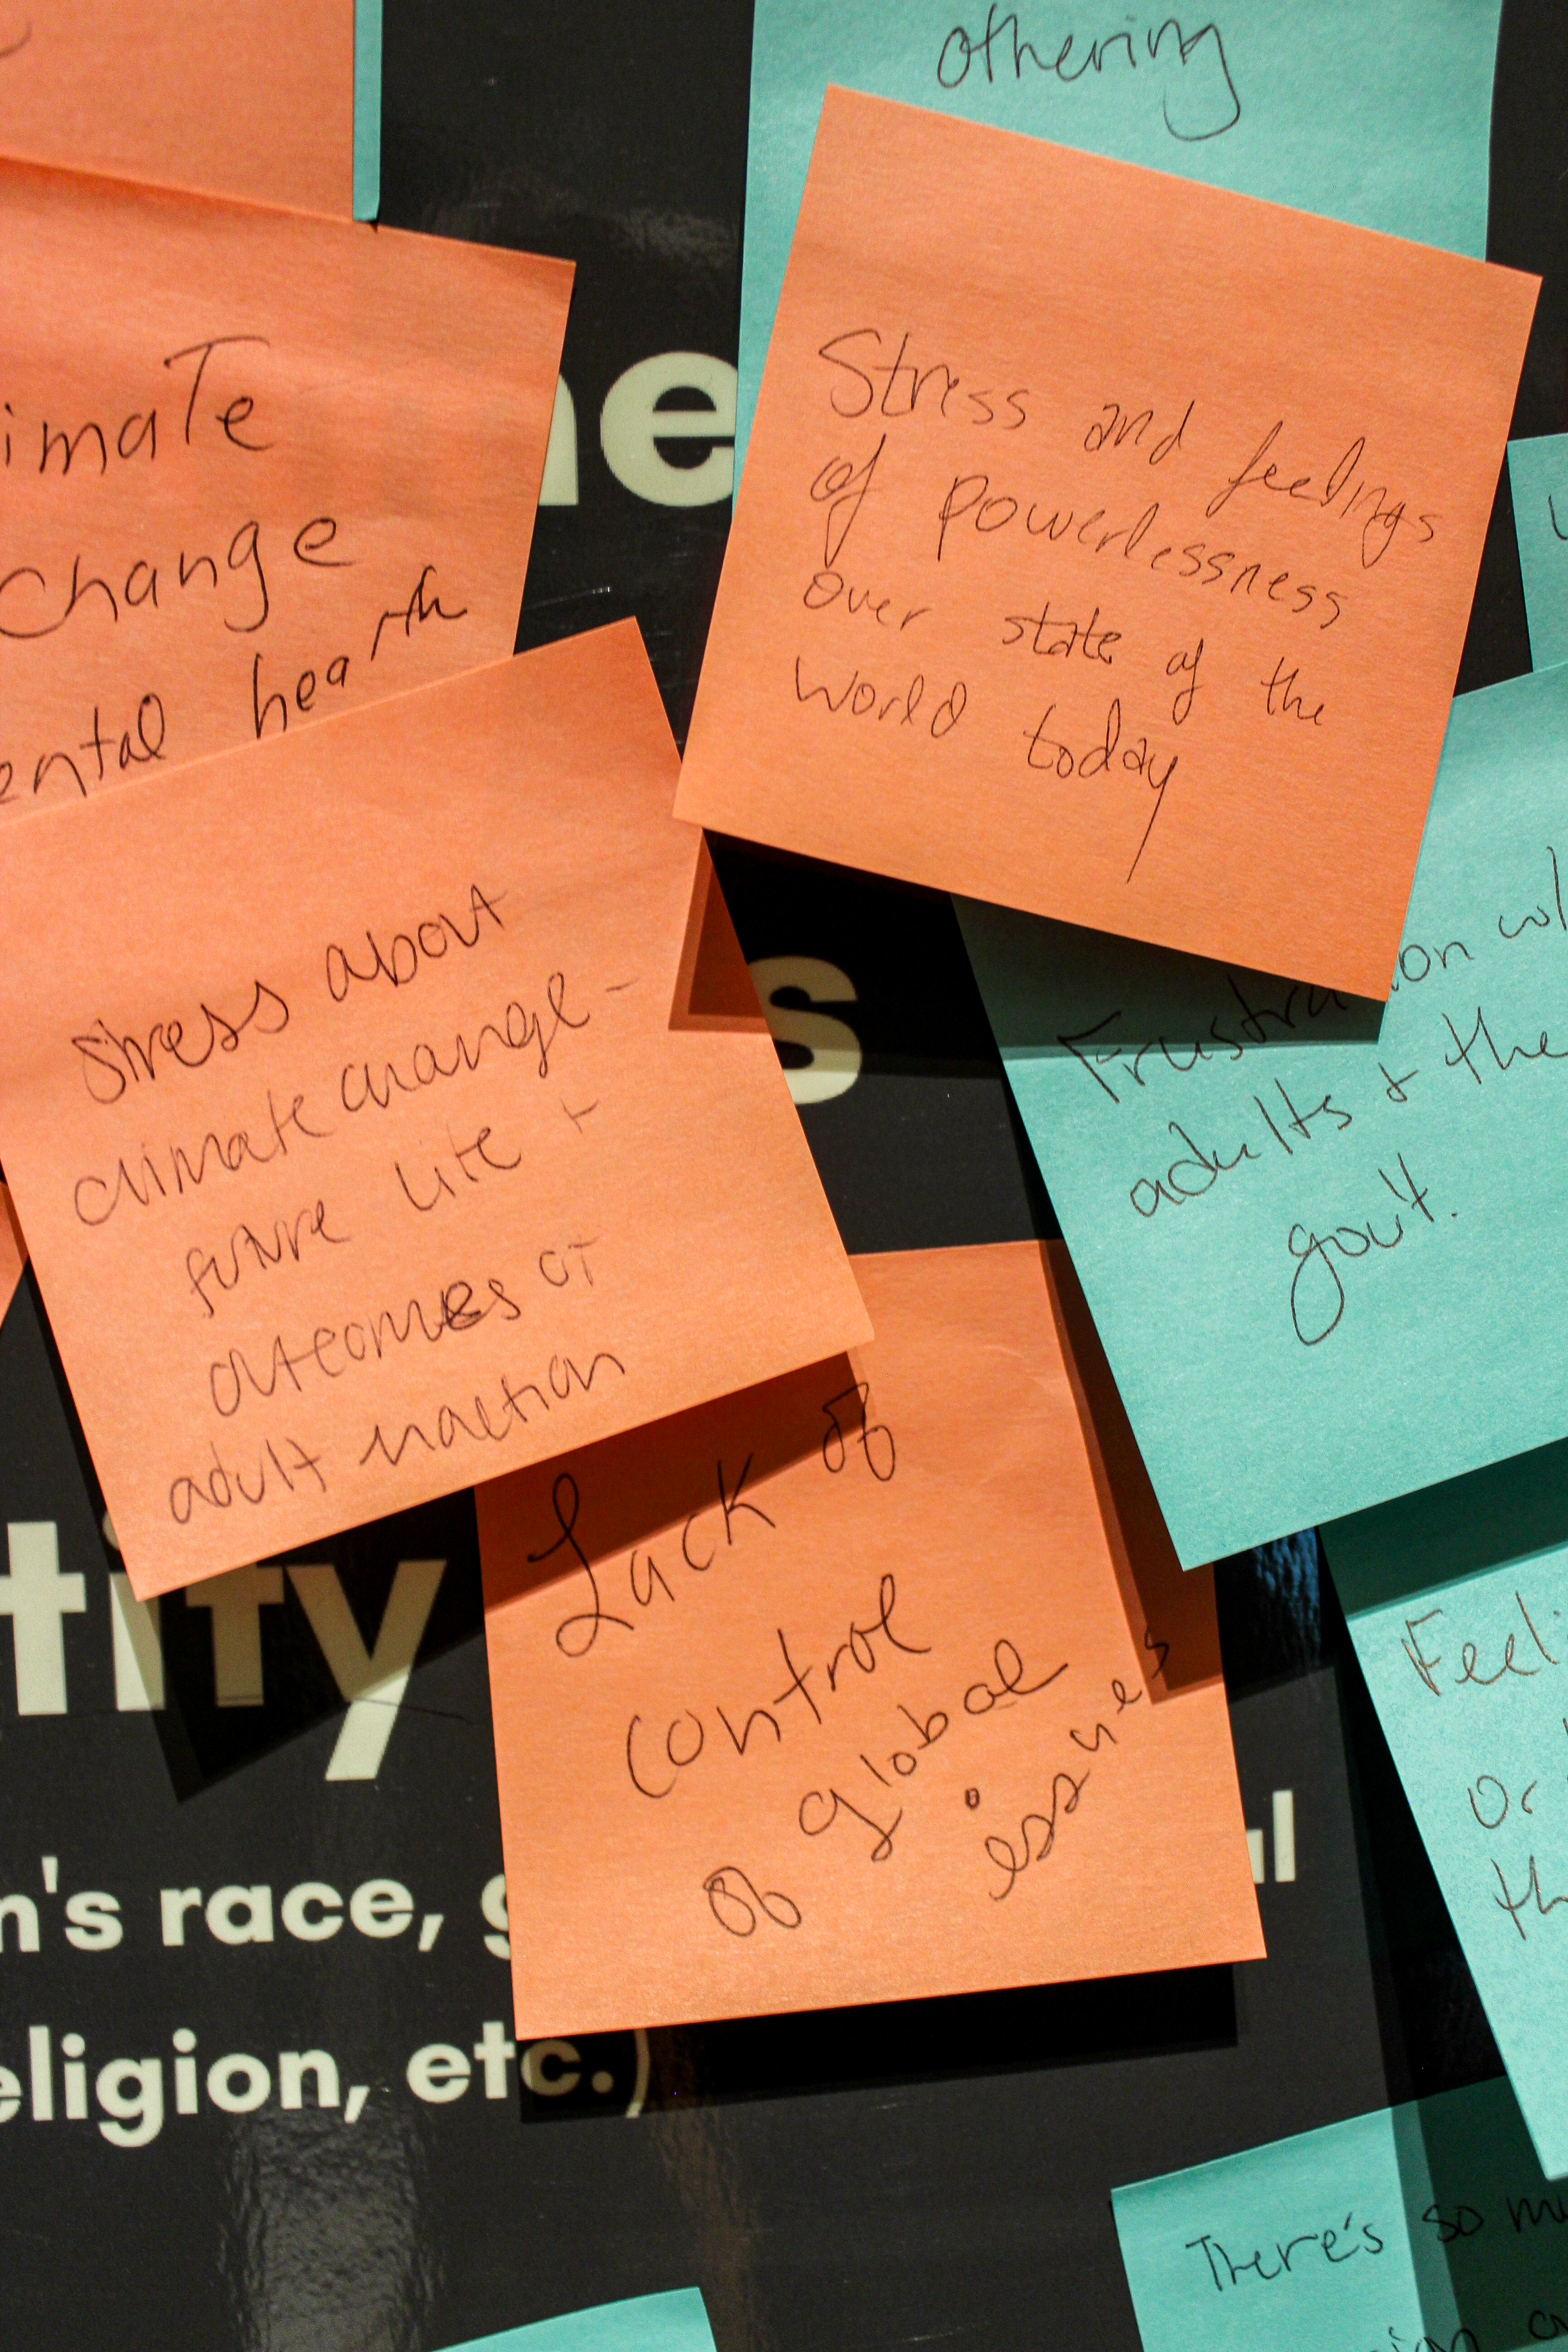 othering
Stress and feelings
of powerlessness
over state of the
world today
imate
Change
ental health
ne
Stress about
climate change -
future life +
outcomes of
adult inaction
s
Frustration w/
adults + the
gov't.
Lack of
control
of global
issues
tity
n's race, g
al
eligion, etc.)
Feeli
or
th
There's so mu